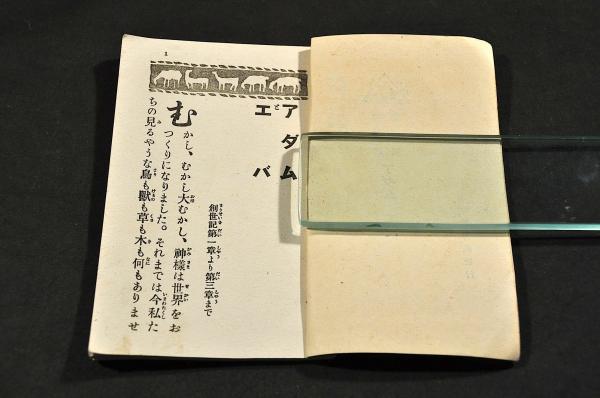 1
アダムと
エバ
創世記第一章より第三章まで
むかし、むかし大むかし、神樣は世界をお
つくりになりました。それまでは今私た
ちの見るやうな鳥も獸も草も木も何もありませ